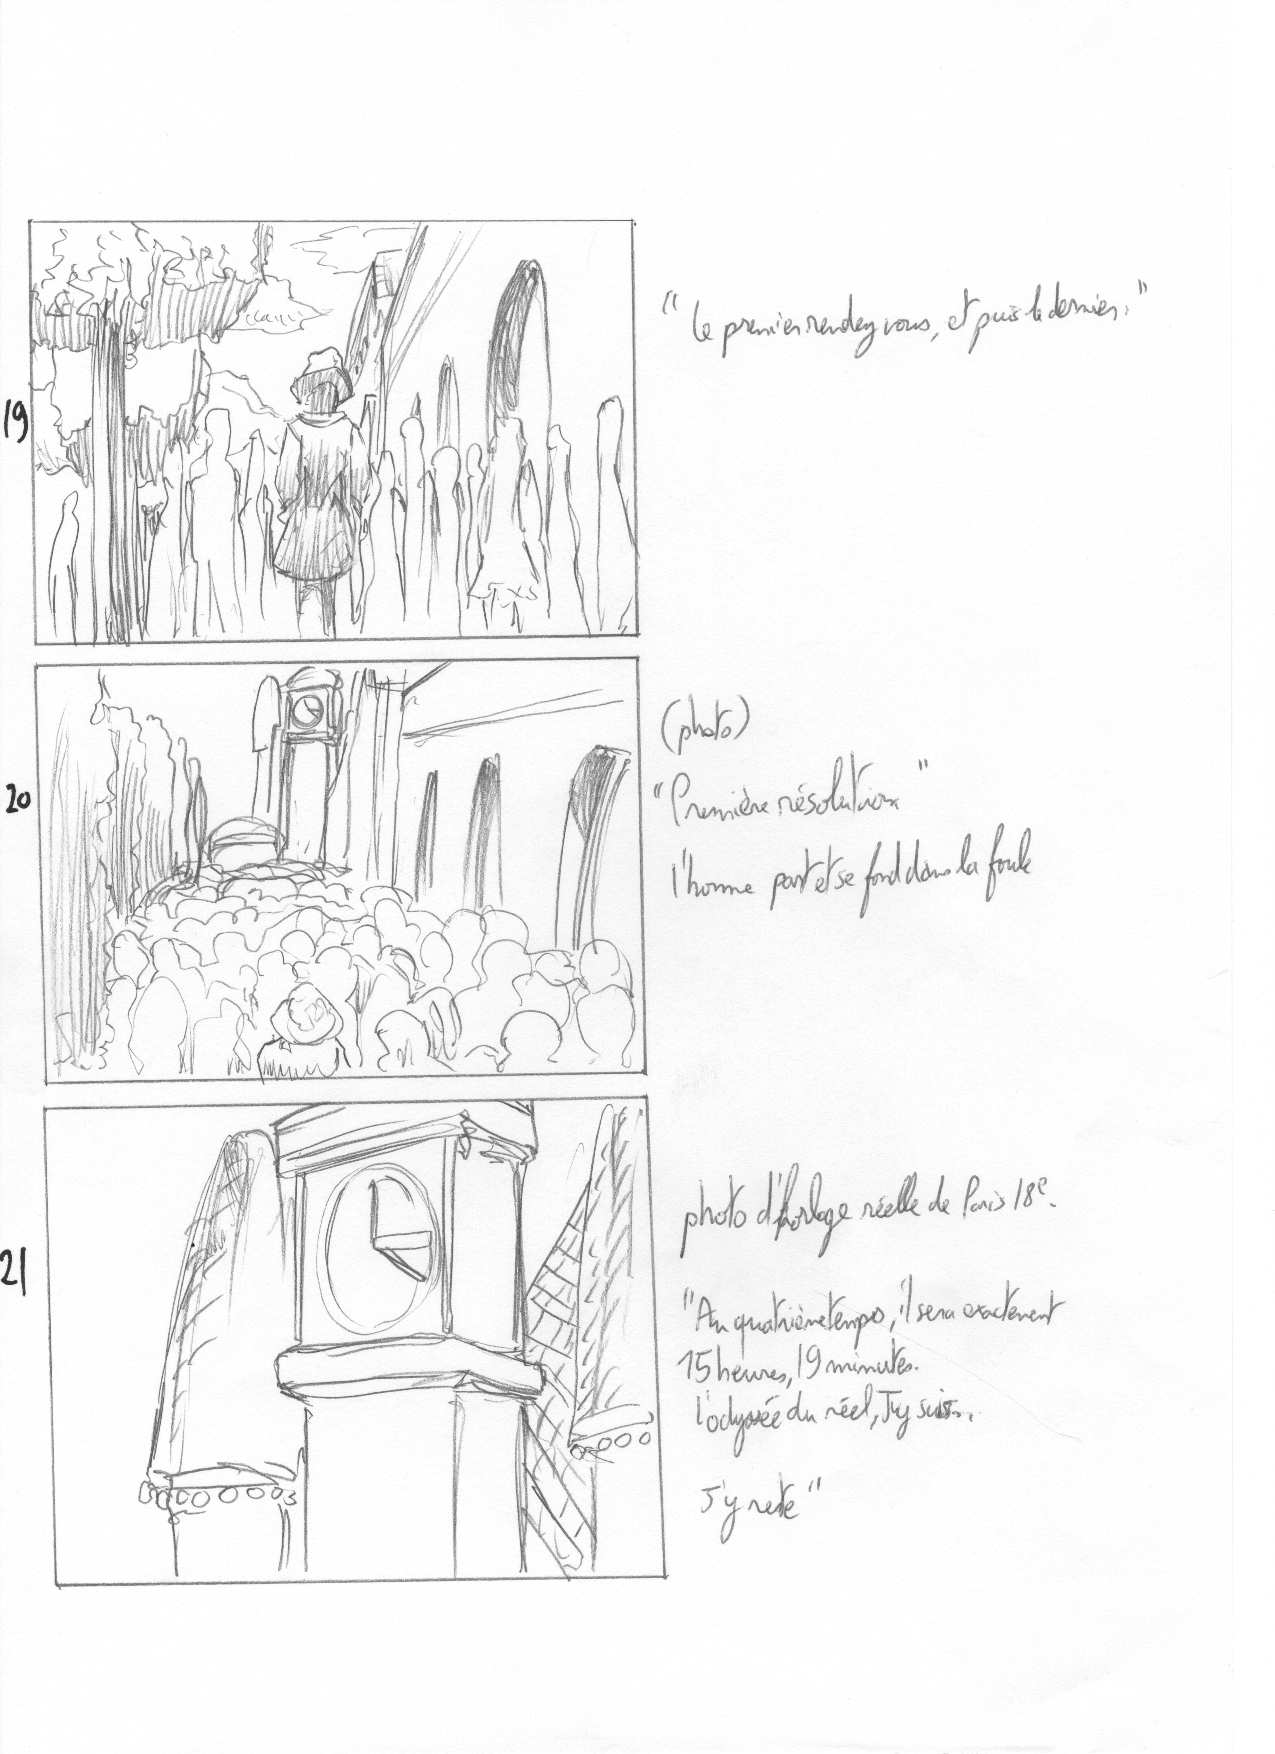 19
"Le premier rendez vous, et puis le dernier."
20
(photo)
"Première résolution"
l'homme part et se fond dans la foule
21
photo d'horloge réelle de Paris 18e.
"Au quatrième tempo, il sera exactement
15 heures, 19 minutes.
l'odyssée du réel, J'y suis.
J'y reste"